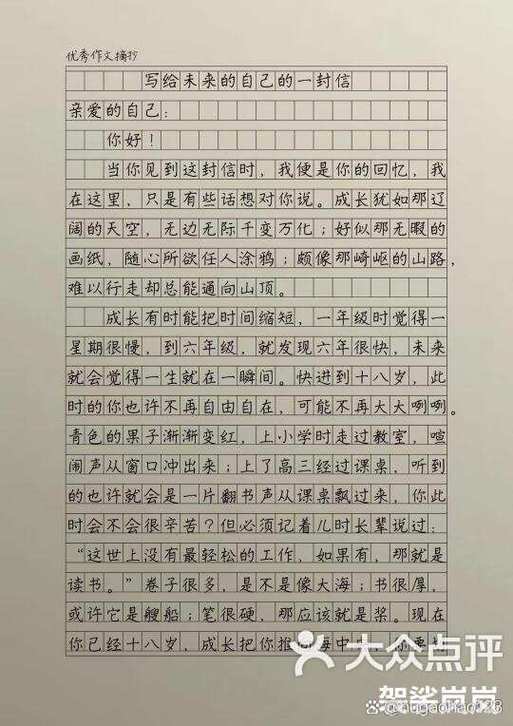 优秀作文摘抄
写给未来的自己的一封信
亲爱的自己：
你好！
当你见到这封信时，我便是你的回忆，我
在这里，只是有些话想对你说。成长犹如那辽
阔的天空，无边无际千变万化；好似那无暇的
画纸，随心所欲任人涂鸦；颇像那崎岖的山路，
难以行走却总能通向山顶。
成长有时能把时间缩短，一年级时觉得一
星期很慢，到六年级，就发现六年很快，未来
就会觉得一生就在一瞬间。快进到十八岁，此
时的你也许不再自由自在，可能不再大大咧咧。
青色的果子渐渐变红，上小学时走过教室，喧
闹声从窗口冲出来；上了高三经过课桌，听到
的也许就会是一片翻书声从课桌飘过来，你此
时会不会很辛苦？但必须记着儿时长辈说过：
“这世上没有最轻松的工作，如果有，那就是
读书。”卷子很多，是不是像大海；书很厚，
或许它是艘船；笔很硬，那应该就是桨。现在
你已经十八岁，成长把你推向海中
大众点评
架娑岚岚